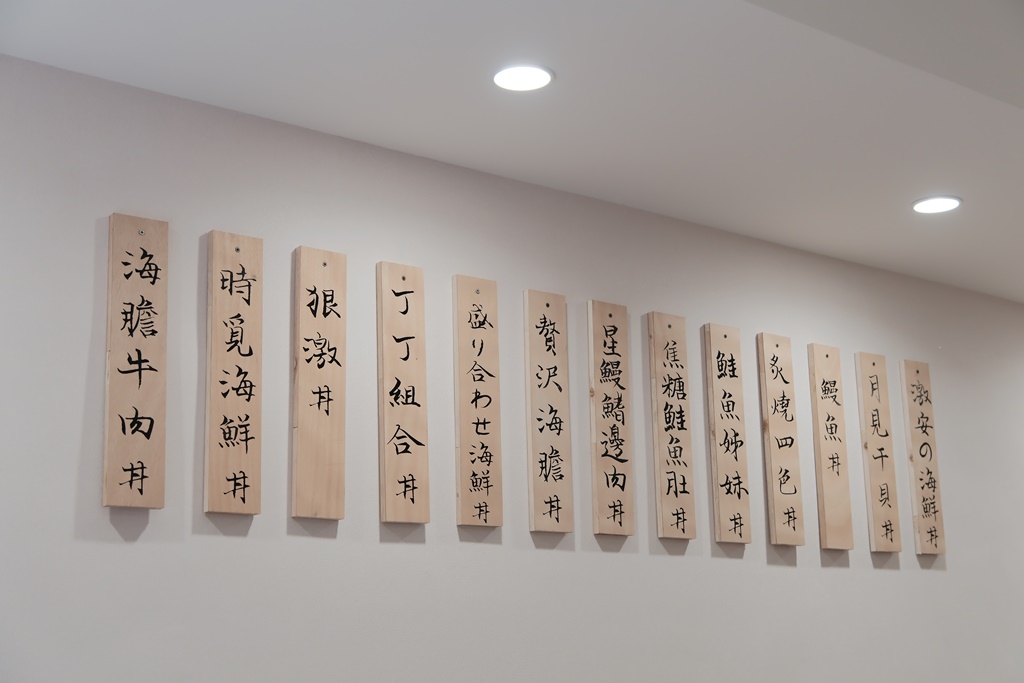 海膽牛肉丼
時覓海鮮丼
狠激丼
丁丁組合丼
盛り合わせ海鮮丼
贅沢海膽丼
星鰻鰭邊肉丼
焦糖鮭魚肚丼
鮭魚姊妹丼
炙燒四色丼
鰻魚丼
月見干貝丼
激安の海鮮丼